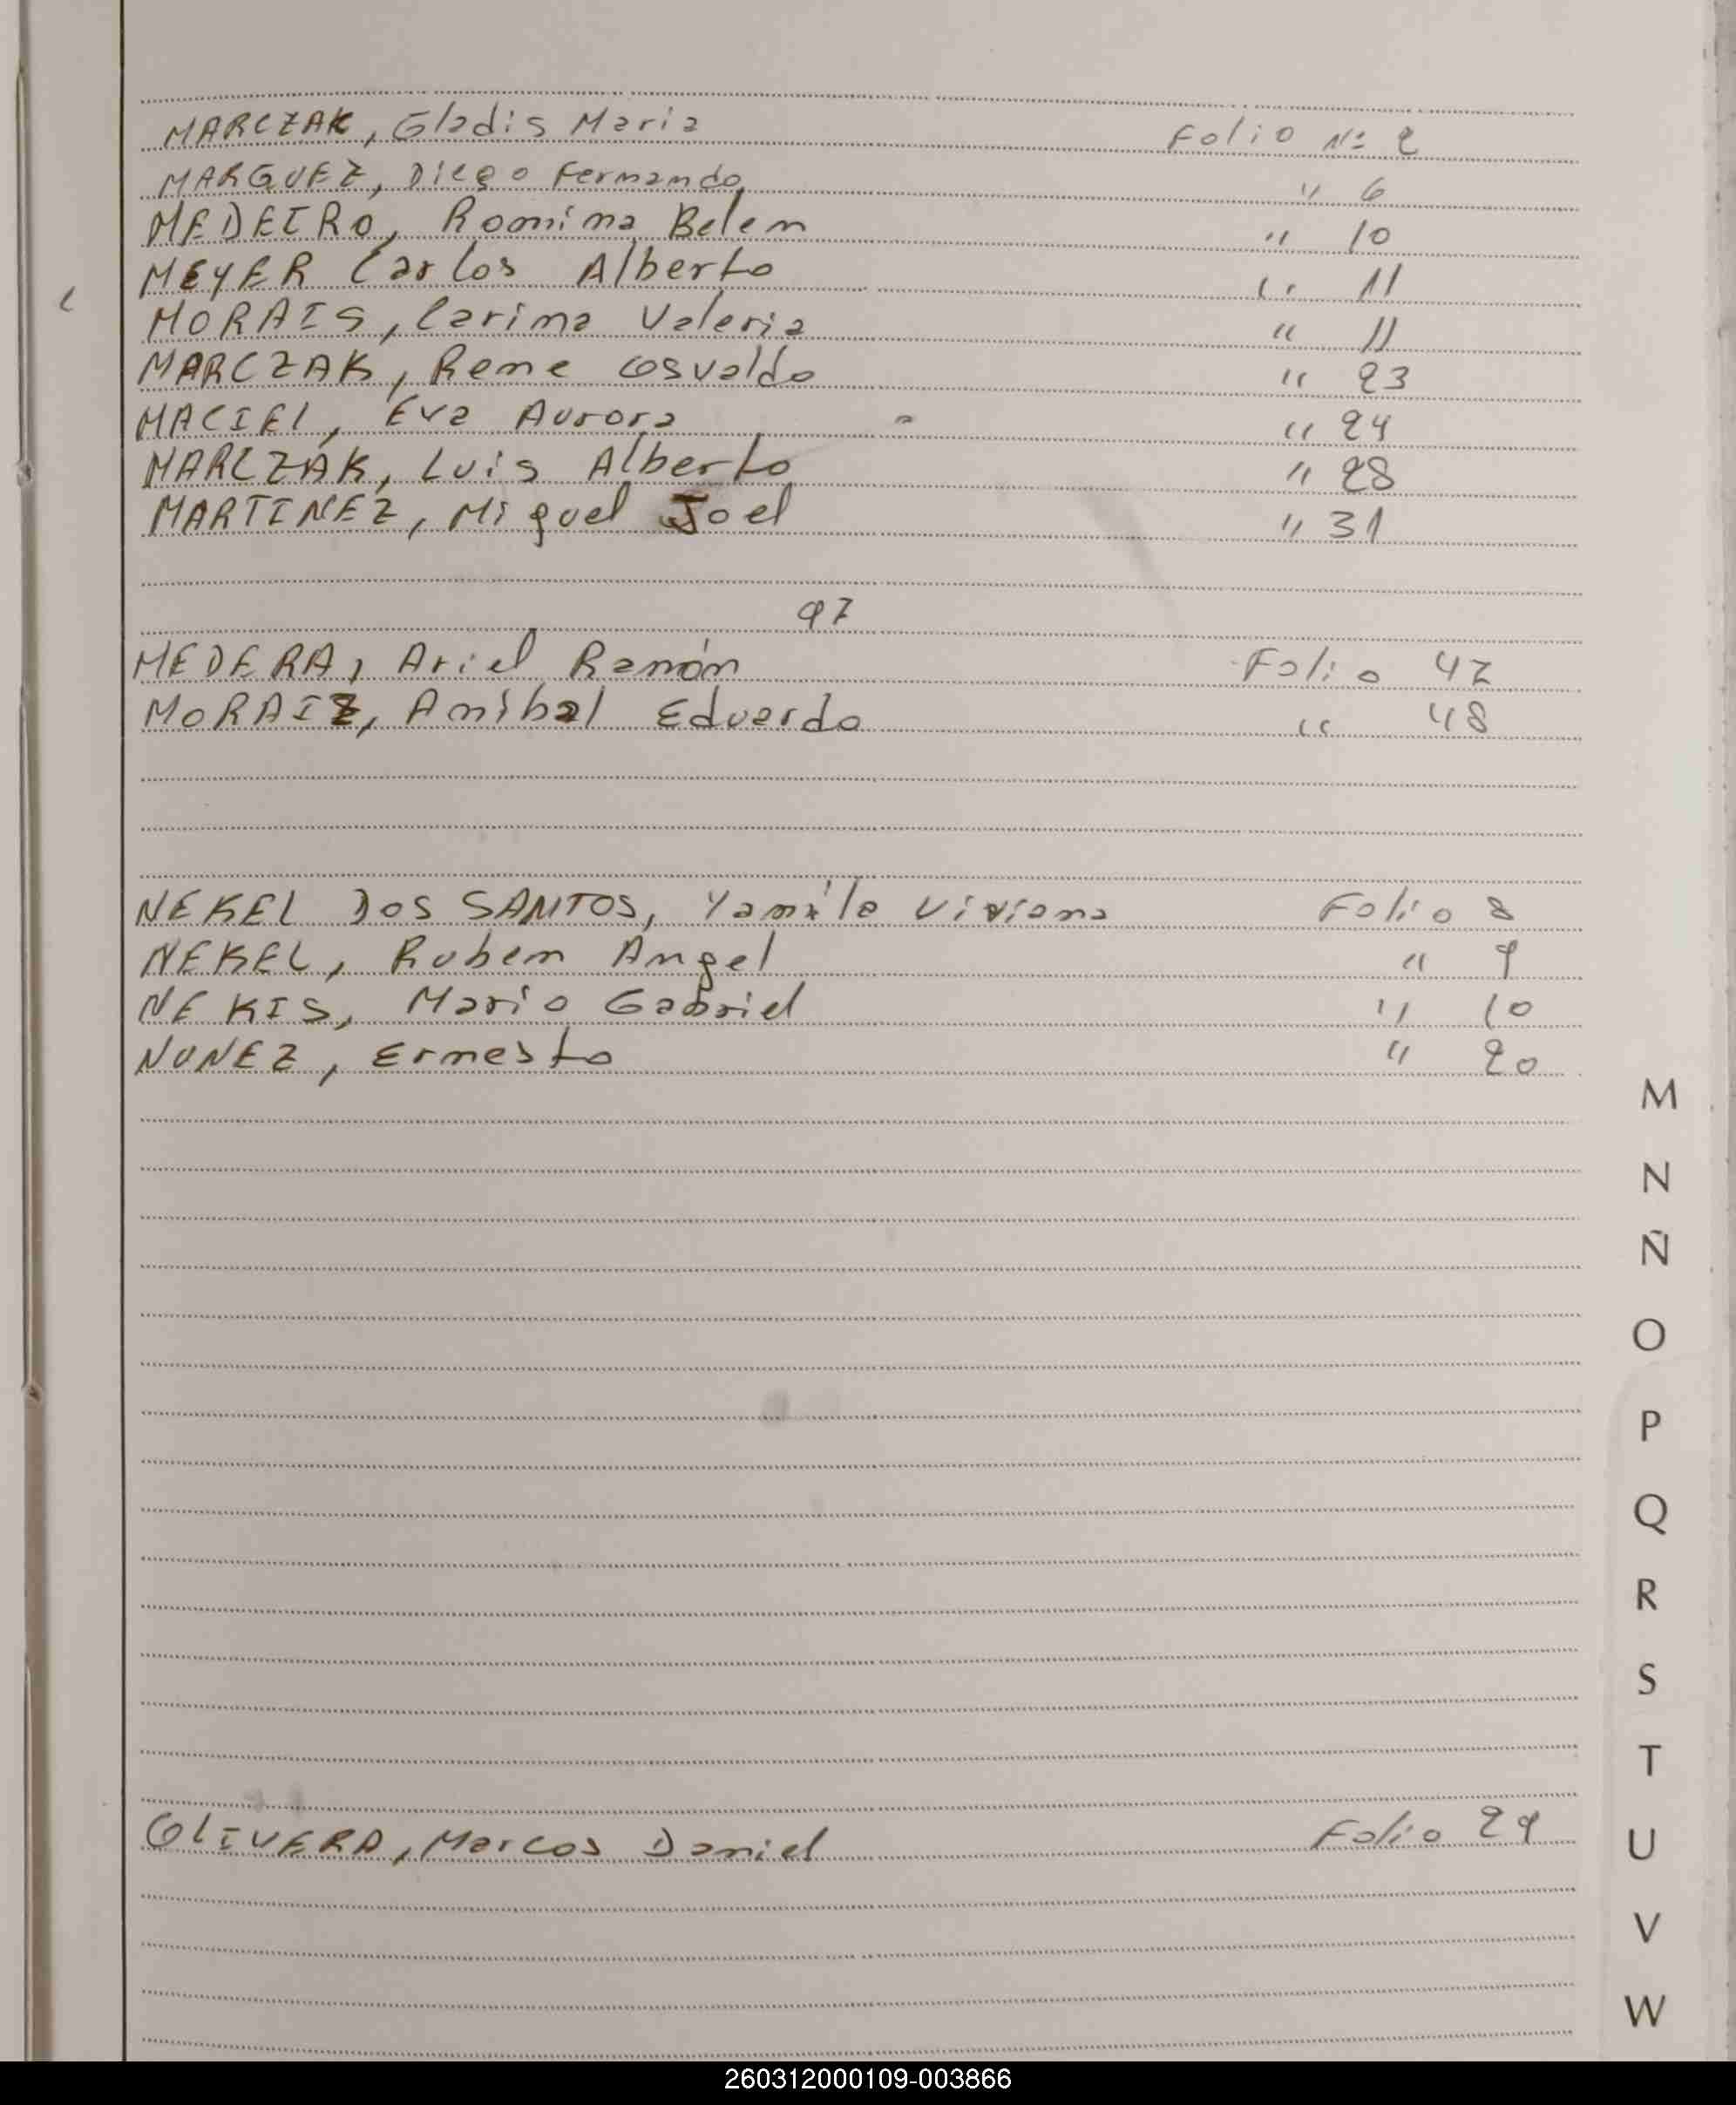 MARCZAK, Gladis Maria Folio Nº 2
MARQUEZ, Diego Fernando " 6
MEDEIRO, Romina Belen " 10
MEYER Carlos Alberto " 11
MORAIS, Carina Valeria " 11
MARCZAK, Rene Osvaldo " 23
MACIEL, Eva Aurora " 24
MARCZAK, Luis Alberto " 28
MARTINEZ, Miguel Joel " 31
97
MEDERA, Ariel Ramón Folio 47
MORAIZ, Anibal Eduardo " 48
NEKEL DOS SANTOS, Yamila Viviana Folio 8
NEKEL, Ruben Angel " 9
NEKIS, Mario Gabriel " 10
NUNEZ, Ernesto " 20
OLIVERA, Marcos Daniel Folio 29
M
N
Ñ
O
P
Q
R
S
T
U
V
W
260312000109-003866